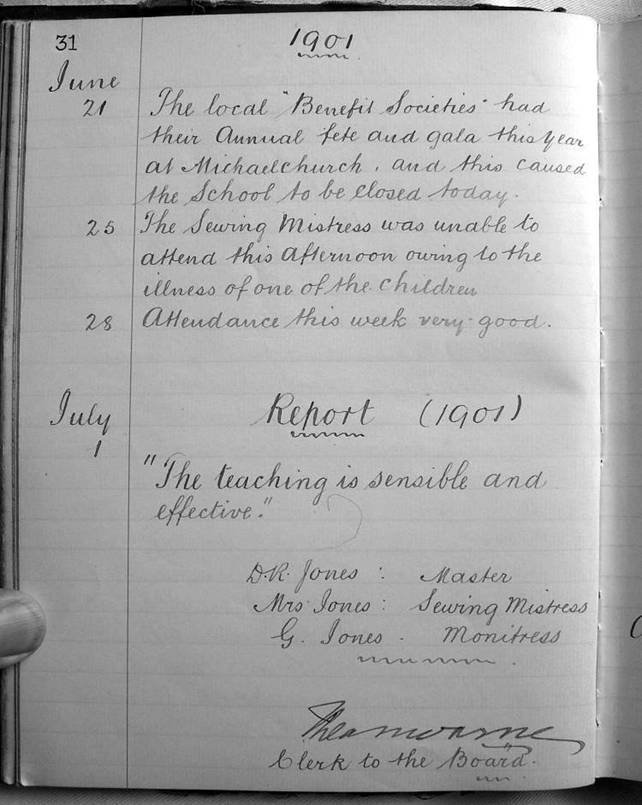 31
1901
June
21 The local "Benefit Societies" had
their Annual fete and gala this year
at Michaelchurch, and this caused
the School to be closed today.
25 The Sewing Mistress was unable to
attend this afternoon owing to the
illness of one of the children
28 Attendance this week very good.
July Report (1901)
1
"The teaching is sensible and
effective."
D.R. Jones : Master
Mrs Jones : Sewing Mistress
G. Jones . Monitress
Clerk to the Board.